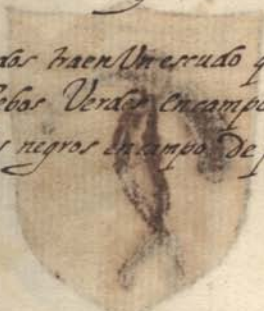 dos traen Un escudo q
Verdes en campo
s negros en campo de p